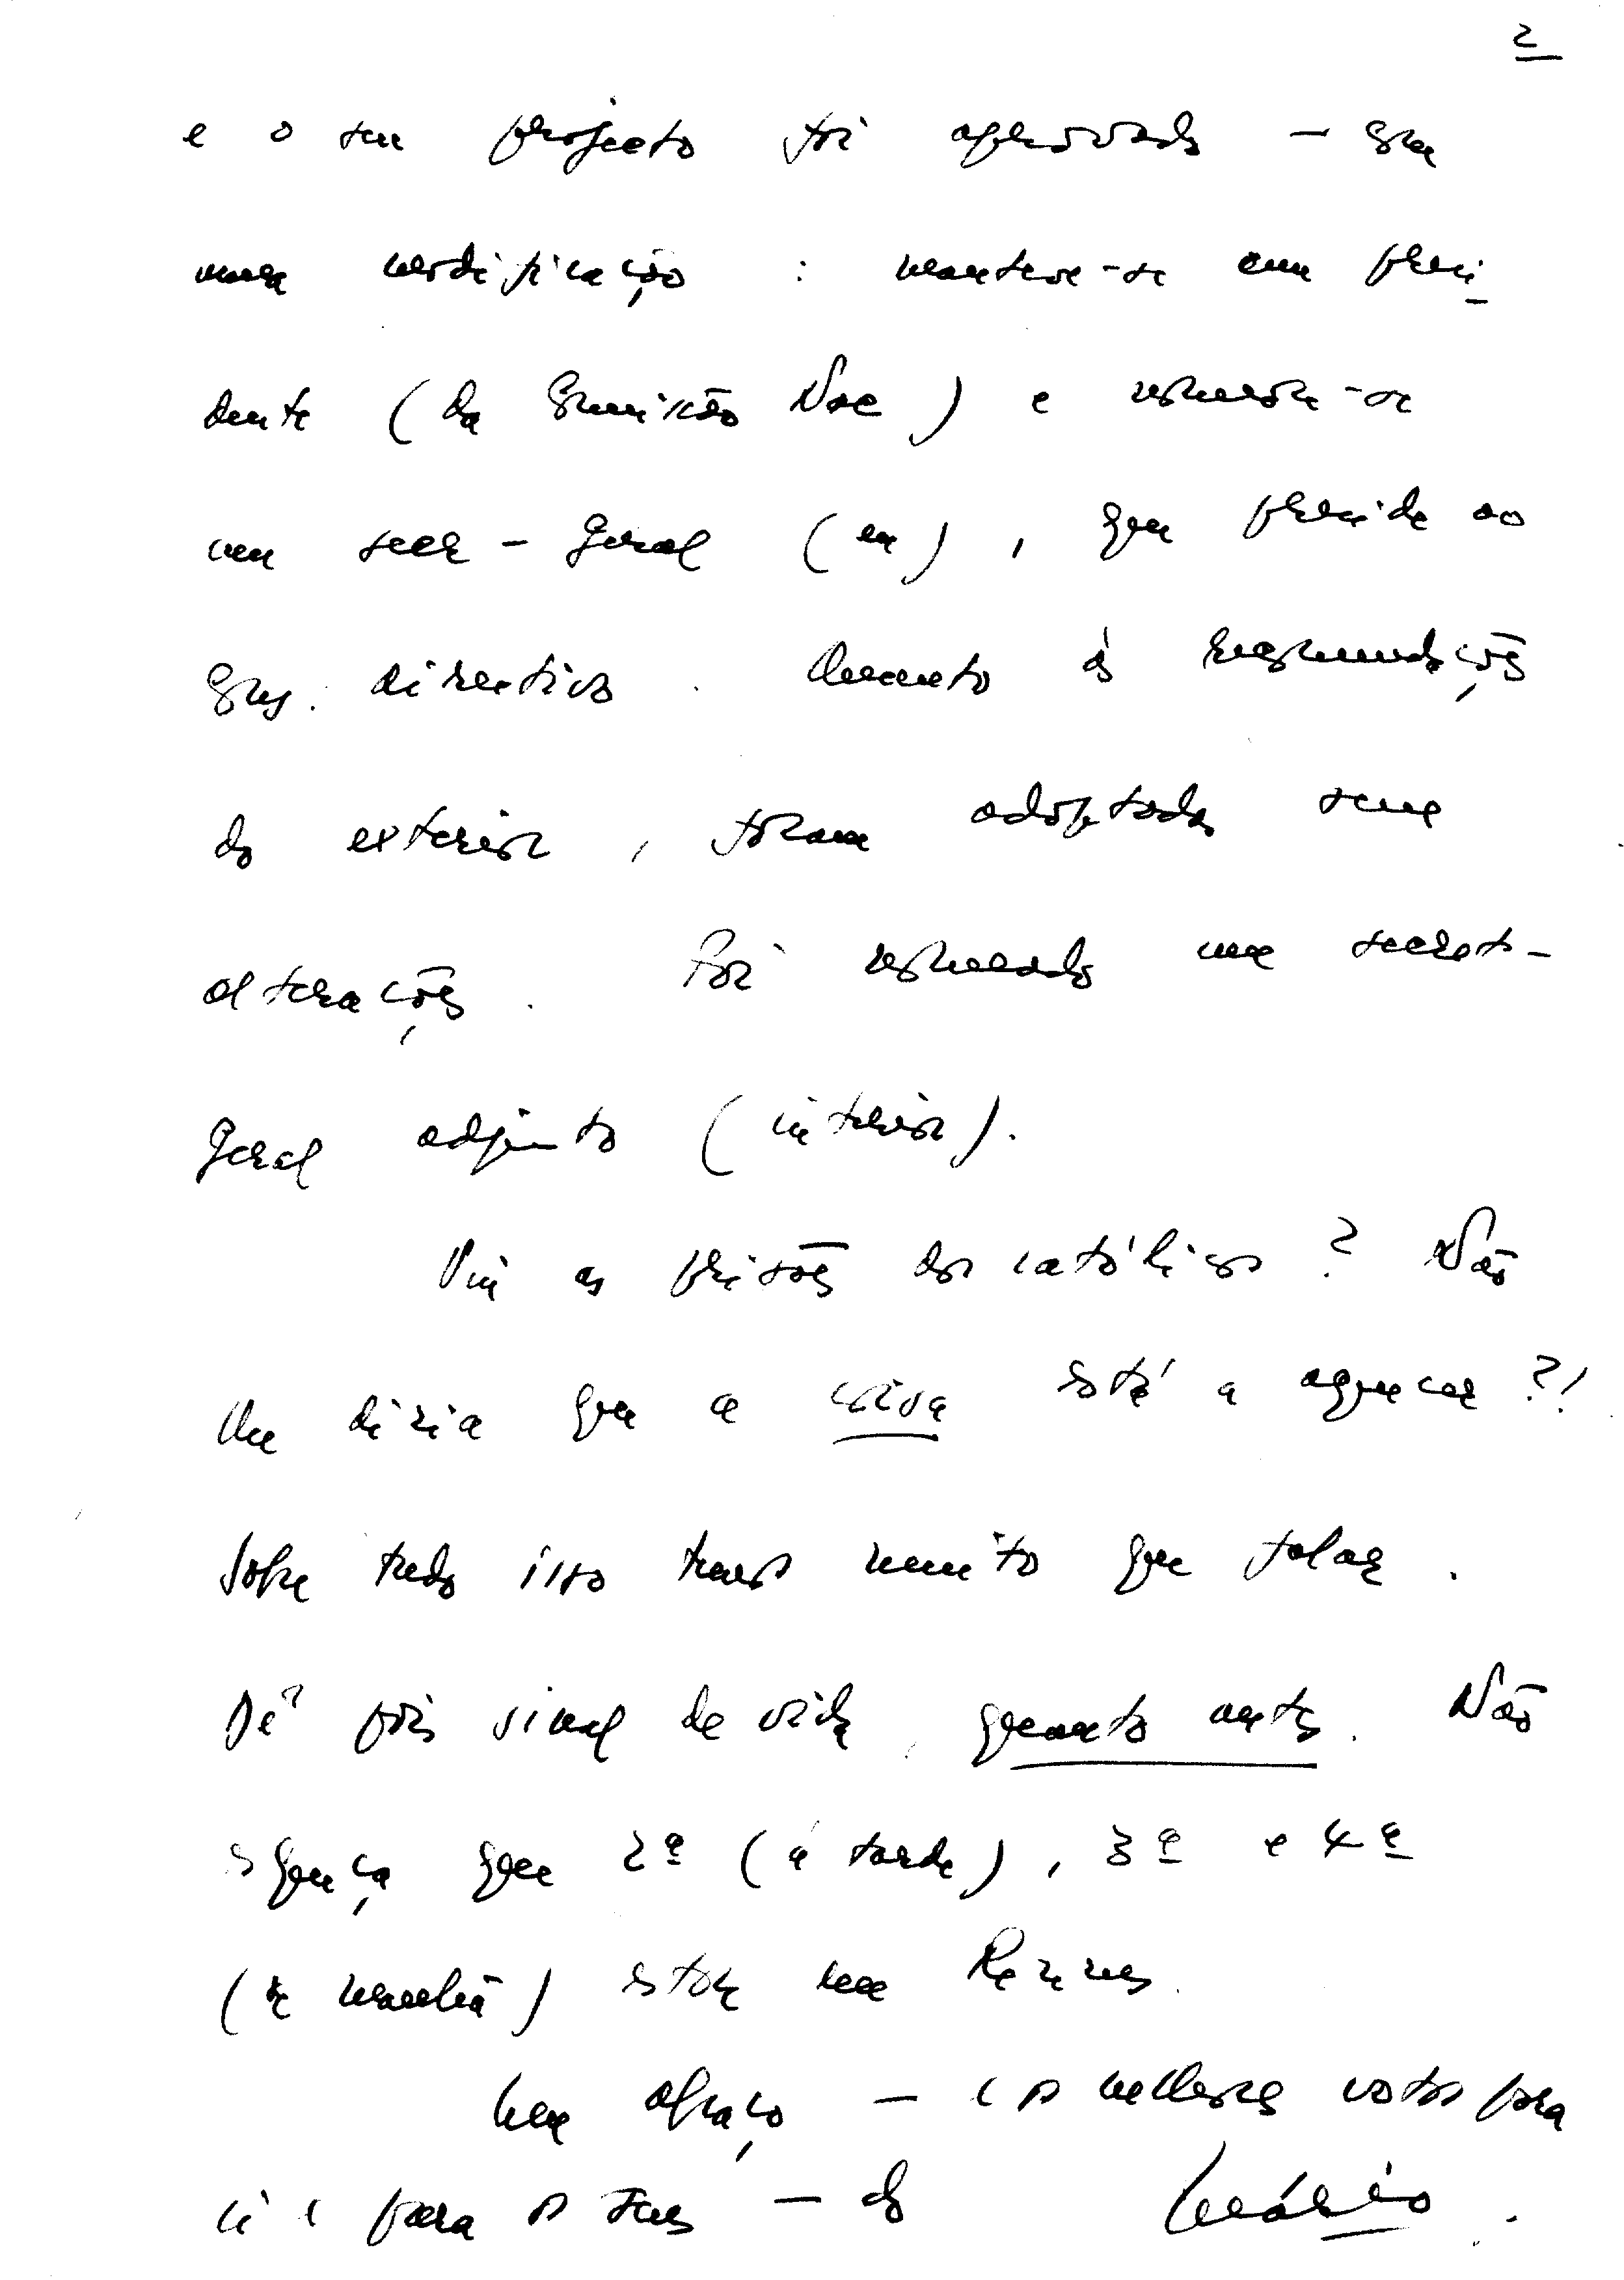 2
e o seu projecto foi aprovado – com
uma modificação : manteve-se um presi-
dente (da Comissão Nac) e nomeou-se
um secr-geral (eu), que preside ao
Cons. directivo. Quanto às recomendações
do exterior, foram adoptadas sem
alterações. Foi nomeado um secret-
geral adjunto (interior).
Viu as prisões dos católicos? Não
lhe dizia que a coisa está a aquecer?!
Sobre tudo isso temos muito que falar.
Dê pois sinal de vida, quanto antes. Não
esqueça que 2ª (à tarde), 3ª e 4ª
(de manhã) estou em Rennes.
Um abraço – e os melhores votos para
si e para os seus – do Mário.